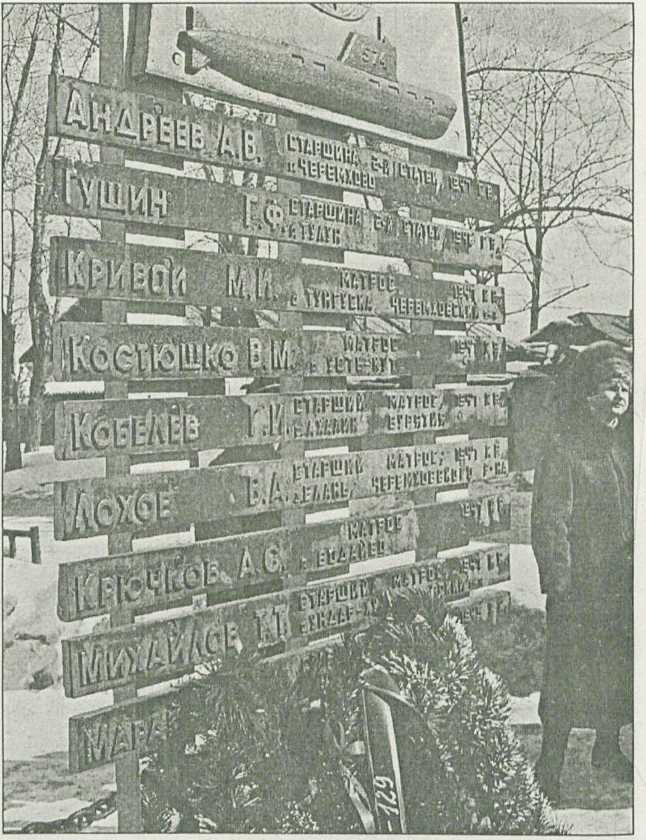 574
АНДРЕЕВ А.В. СТАРШИНА 2-Й СТАТЬИ, 1947 Г.Р.
г. ЧЕРЕМХОВО
ГУЩИН Г.Ф. СТАРШИНА 2-Й СТАТЬИ, 1946 Г.Р.
г. ТУЛУН
КРИВОЙ М.И. МАТРОС 1947 Г.Р.
с. ТУНГУСКА ЧЕРЕМХОВСКИЙ
КОСТЮШКО В.М. МАТРОС 1947 Г.Р.
КОБЕЛЕВ Г.И. СТАРШИЙ МАТРОС, 1947 Г.Р.
БУРЯТИЯ
ЛОХОВ В.А. СТАРШИЙ МАТРОС, 1947 Г.Р.
ЧЕРЕМХОВСКОГО Р-НА
КРЮЧКОВ А.С. МАТРОС 1947 Г.Р.
г. БОДАЙБО
МИХАЙЛОВ Т.Т. СТАРШИЙ МАТРОС, 1947 Г.Р.
МАРА
129